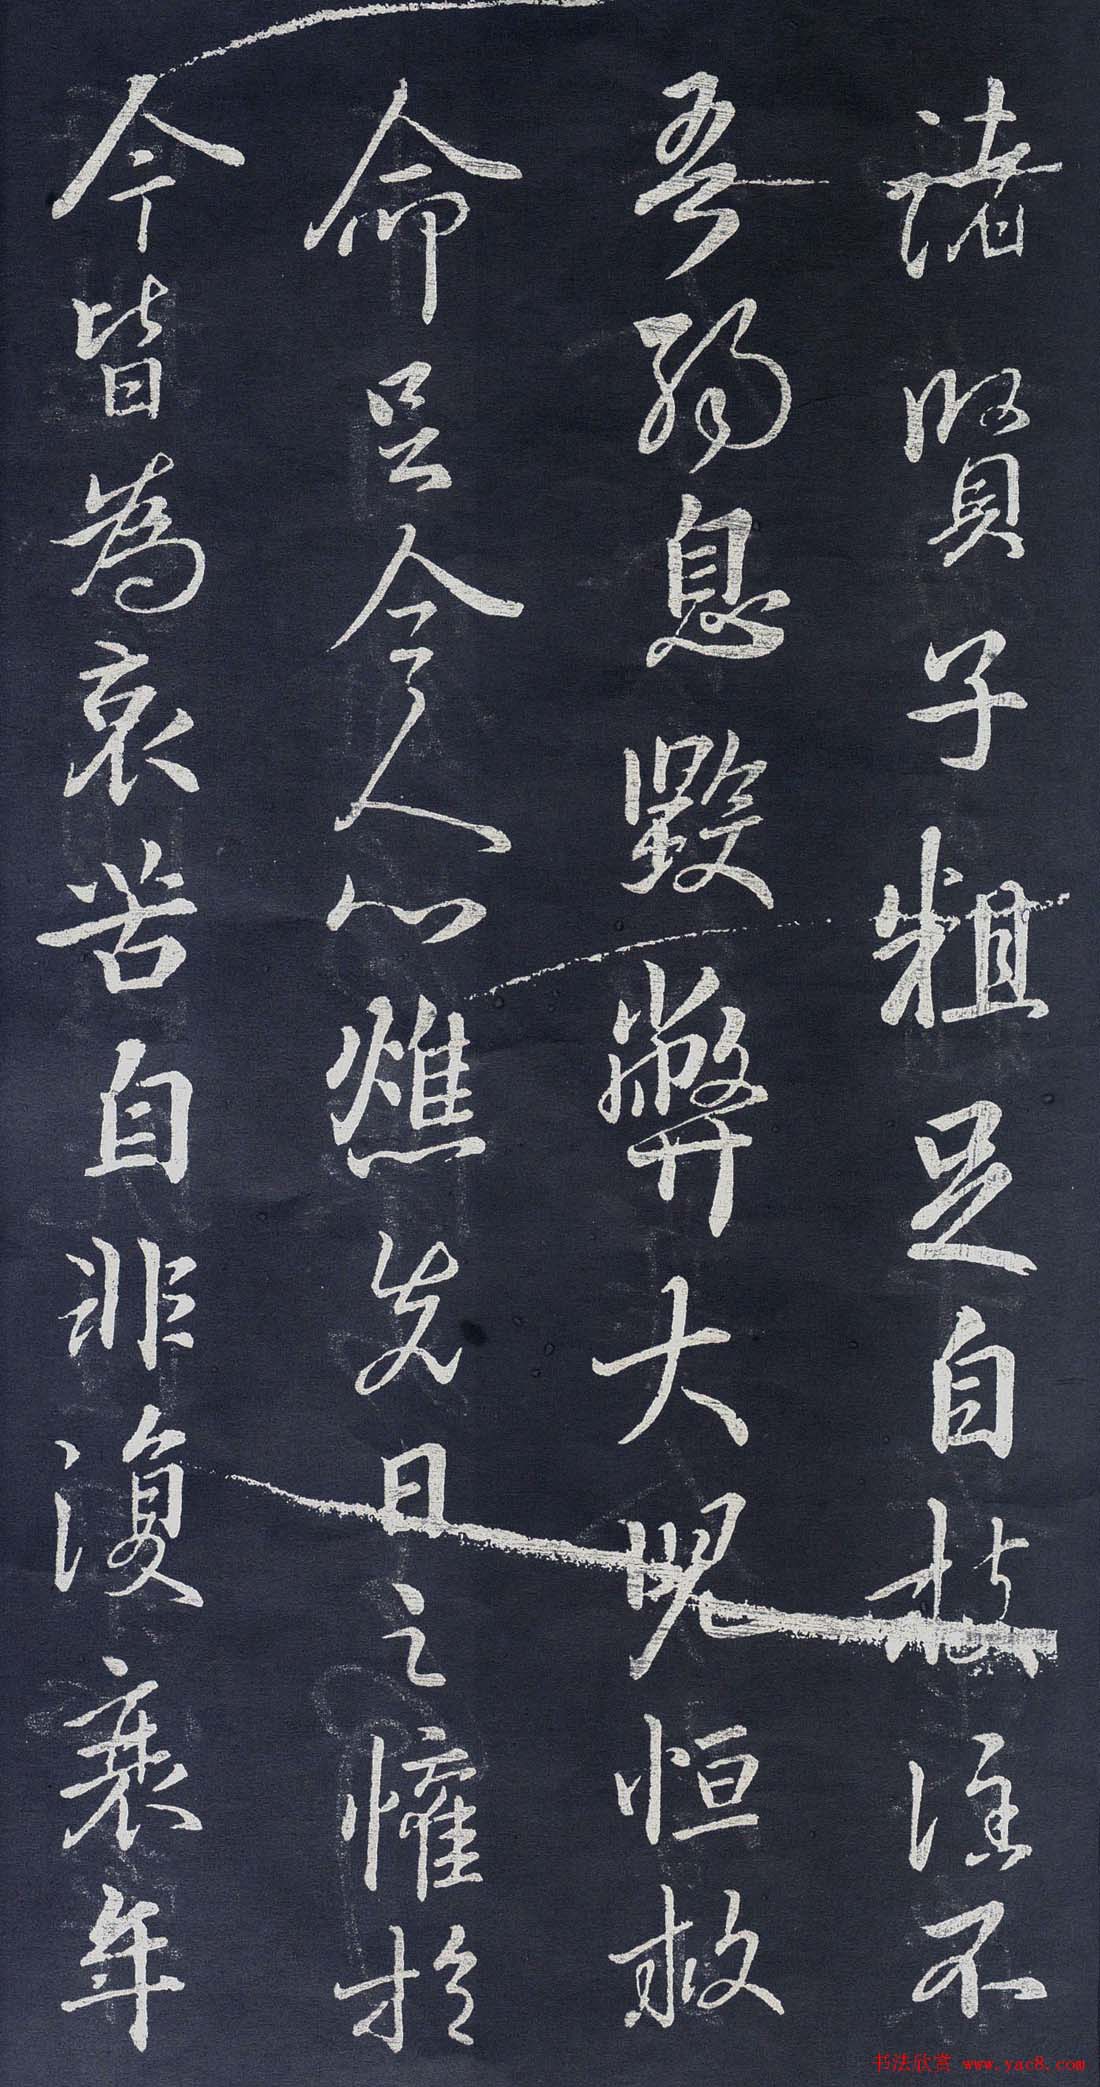 諸賢子粗足自不
吾弱息毀弊大兒恒救
命足令人心燋先日之懽於
今皆為哀苦自非復衰年
书法欣赏 www.yac8.com